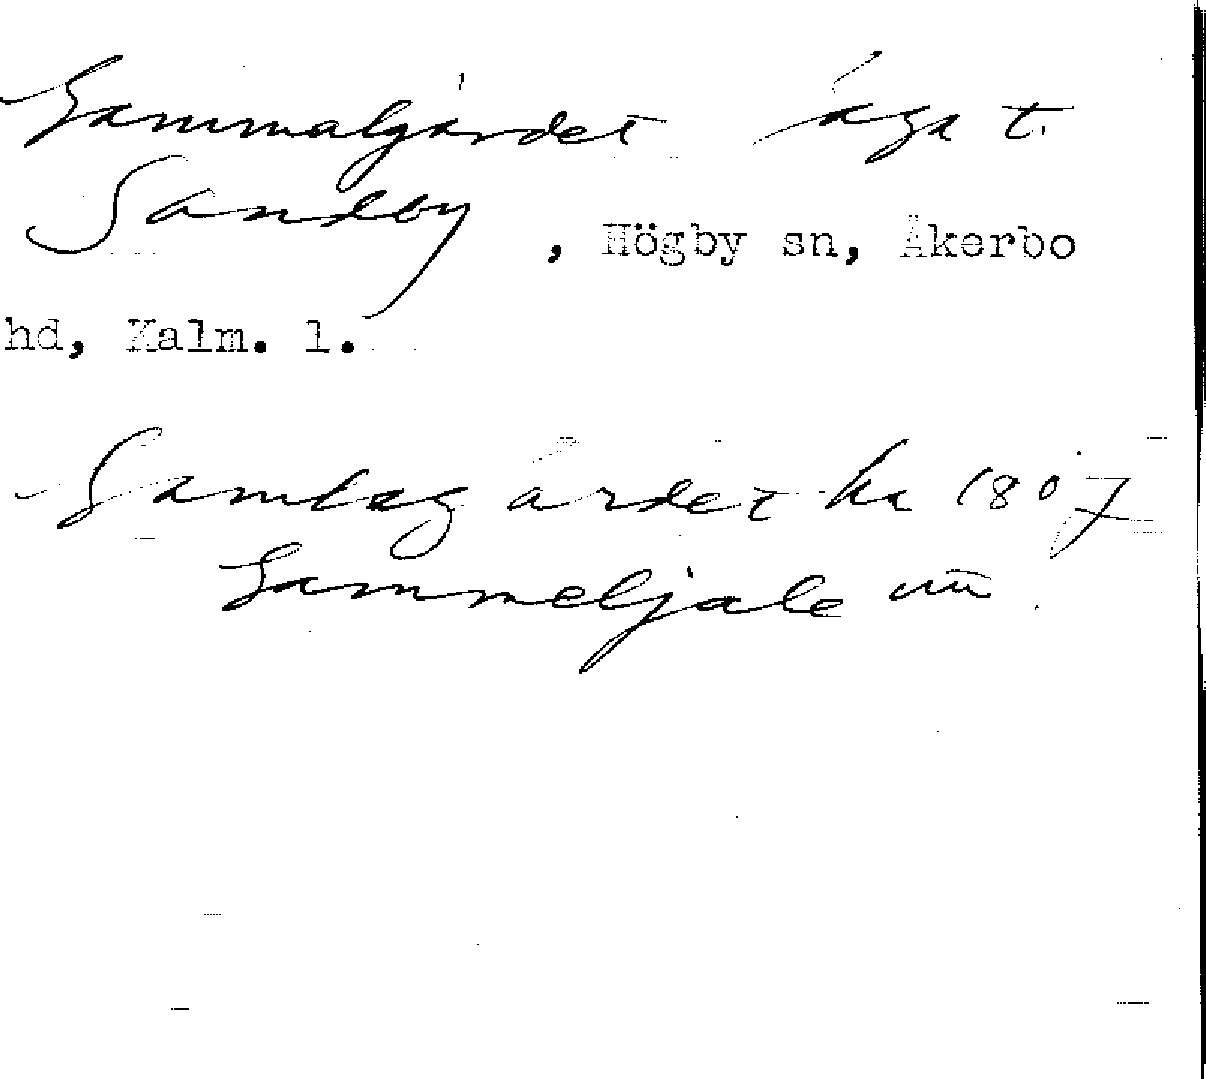 Sammalgärdet äga t.
Sandby
, Högby sn, Åkerbo
hd, Kalm. l.
Samlegärdet ha 1807
Sammeljale